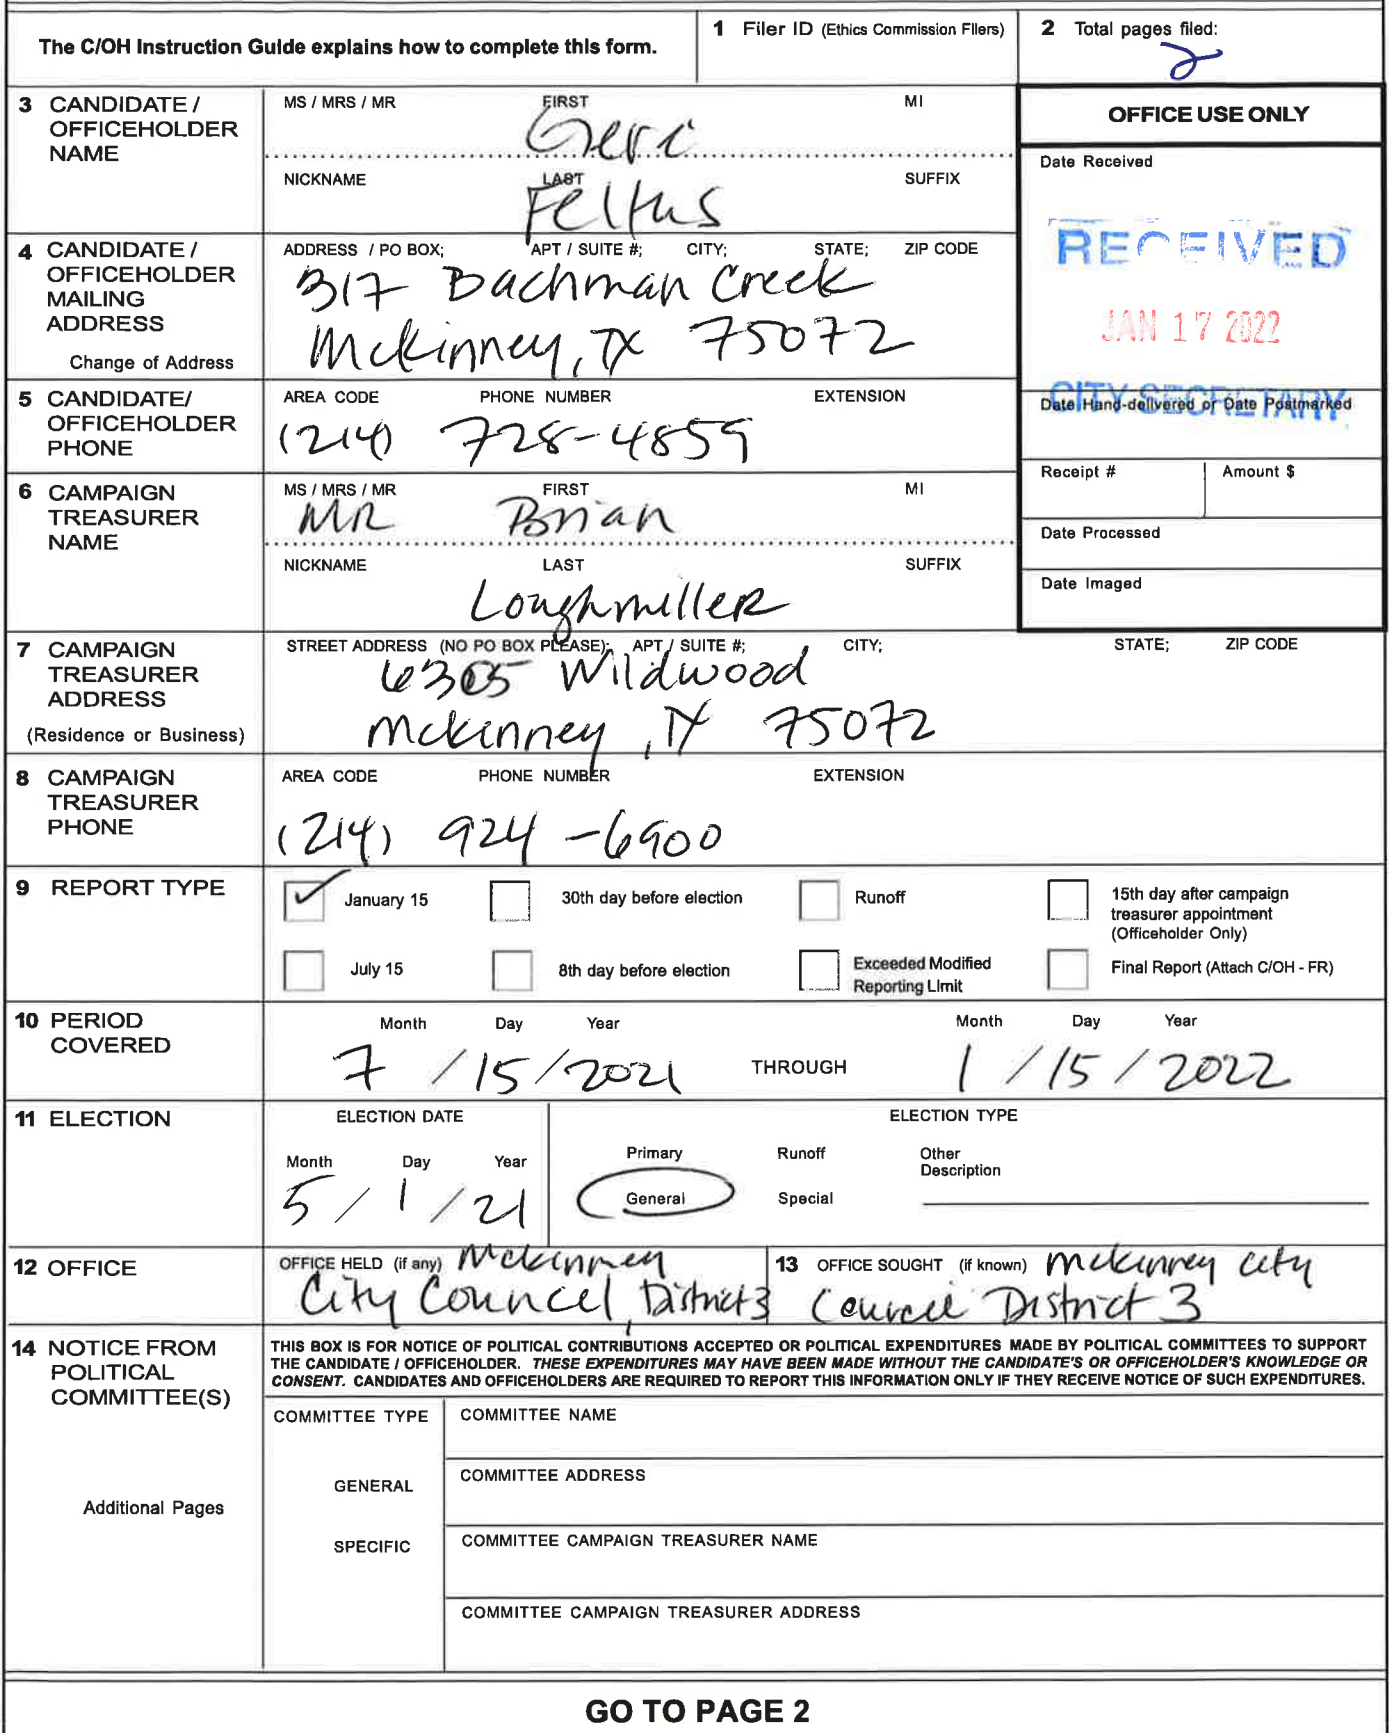 The C/OH Instruction Guide explains how to complete this form.
1 Filer ID (Ethics Commission Filers)
2 Total pages filed:
2
3 CANDIDATE / OFFICEHOLDER NAME
MS / MRS / MR FIRST MI
Geri
NICKNAME LAST SUFFIX
Feltus
OFFICE USE ONLY
Date Received
RECEIVED
JAN 17 2022
CITY SECRETARY
Date Hand-delivered or Date Postmarked
Receipt # Amount $
Date Processed
Date Imaged
4 CANDIDATE / OFFICEHOLDER MAILING ADDRESS
Change of Address
ADDRESS / PO BOX; APT / SUITE #; CITY; STATE; ZIP CODE
317 Bachman Creek
McKinney, TX 75072
5 CANDIDATE/ OFFICEHOLDER PHONE
AREA CODE PHONE NUMBER EXTENSION
(214) 728-4859
6 CAMPAIGN TREASURER NAME
MS / MRS / MR FIRST MI
MR Brian
NICKNAME LAST SUFFIX
Loughmiller
7 CAMPAIGN TREASURER ADDRESS
(Residence or Business)
STREET ADDRESS (NO PO BOX PLEASE); APT / SUITE #; CITY; STATE; ZIP CODE
6305 Wildwood
McKinney, TX 75072
8 CAMPAIGN TREASURER PHONE
AREA CODE PHONE NUMBER EXTENSION
(214) 924-6900
9 REPORT TYPE
January 15 30th day before election Runoff 15th day after campaign treasurer appointment (Officeholder Only)
July 15 8th day before election Exceeded Modified Reporting Limit Final Report (Attach C/OH - FR)
10 PERIOD COVERED
Month Day Year Month Day Year
7 / 15 / 2021 THROUGH 1 / 15 / 2022
11 ELECTION
ELECTION DATE ELECTION TYPE
Month Day Year
5 / 1 / 21
Primary Runoff Other Description
General Special
12 OFFICE
OFFICE HELD (if any) McKinney
City Council, District 3
13 OFFICE SOUGHT (if known) McKinney City
Council District 3
14 NOTICE FROM POLITICAL COMMITTEE(S)
THIS BOX IS FOR NOTICE OF POLITICAL CONTRIBUTIONS ACCEPTED OR POLITICAL EXPENDITURES MADE BY POLITICAL COMMITTEES TO SUPPORT
THE CANDIDATE / OFFICEHOLDER. THESE EXPENDITURES MAY HAVE BEEN MADE WITHOUT THE CANDIDATE'S OR OFFICEHOLDER'S KNOWLEDGE OR
CONSENT. CANDIDATES AND OFFICEHOLDERS ARE REQUIRED TO REPORT THIS INFORMATION ONLY IF THEY RECEIVE NOTICE OF SUCH EXPENDITURES.
Additional Pages
COMMITTEE TYPE
GENERAL
SPECIFIC
COMMITTEE NAME
COMMITTEE ADDRESS
COMMITTEE CAMPAIGN TREASURER NAME
COMMITTEE CAMPAIGN TREASURER ADDRESS
GO TO PAGE 2